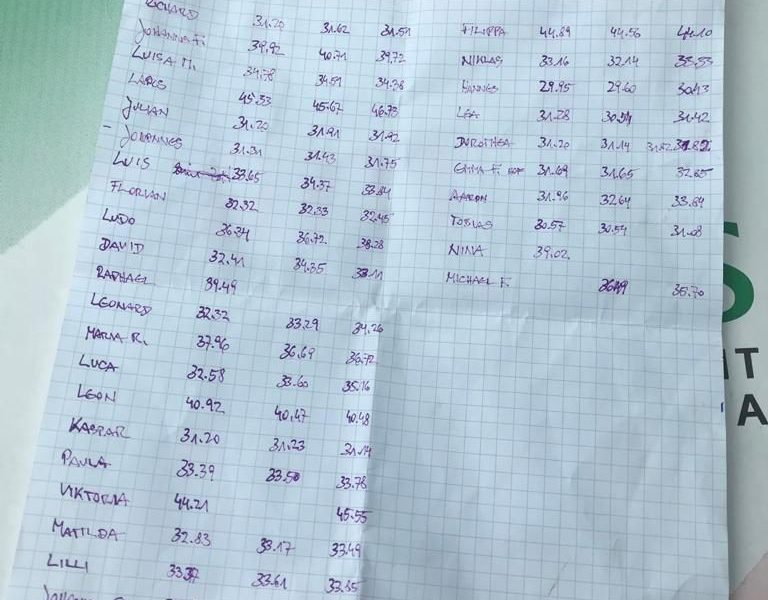 RICHARD 31.20 31.62 31.51
JOHANNA F. 39.92 40.71 39.72
LUISA M. 34.78 34.59 34.38
LARS 45.33 45.67 46.73
JULIAN 31.20 31.91 31.92
- JOHANNES 31.31 31.43 31.75
LUIS 33.65 34.37 33.84
FLORIAN 32.32 32.33 32.45
LUDO 36.34 36.72 38.28
DAVID 32.41 34.35 33.11
RAPHAEL 39.49
LEONARD 32.32 33.29 34.26
MARIA R. 37.96 36.69 36.72
LUCA 32.58 33.60 35.16
LEON 40.92 40.47 40.48
KASPAR 31.20 31.23 31.14
PAULA 33.39 33.50 33.78
VIKTORIA 44.21 45.55
MATILDA 32.83 33.17 33.49
LILLI 33.61 33.35
FILIPPA 44.89 44.56 44.10
NIKLAS 33.16 32.14
HANNES 29.95 29.60 30.43
LEA 31.28 31.42
DOROTHEA 31.20 31.14 31.82
EMMA F. 31.69 31.65 32.85
AARON 31.96 32.64 33.84
TOBIAS 30.57 30.54 31.08
NINA 39.02
MICHAEL F. 35.70
S
IT
A